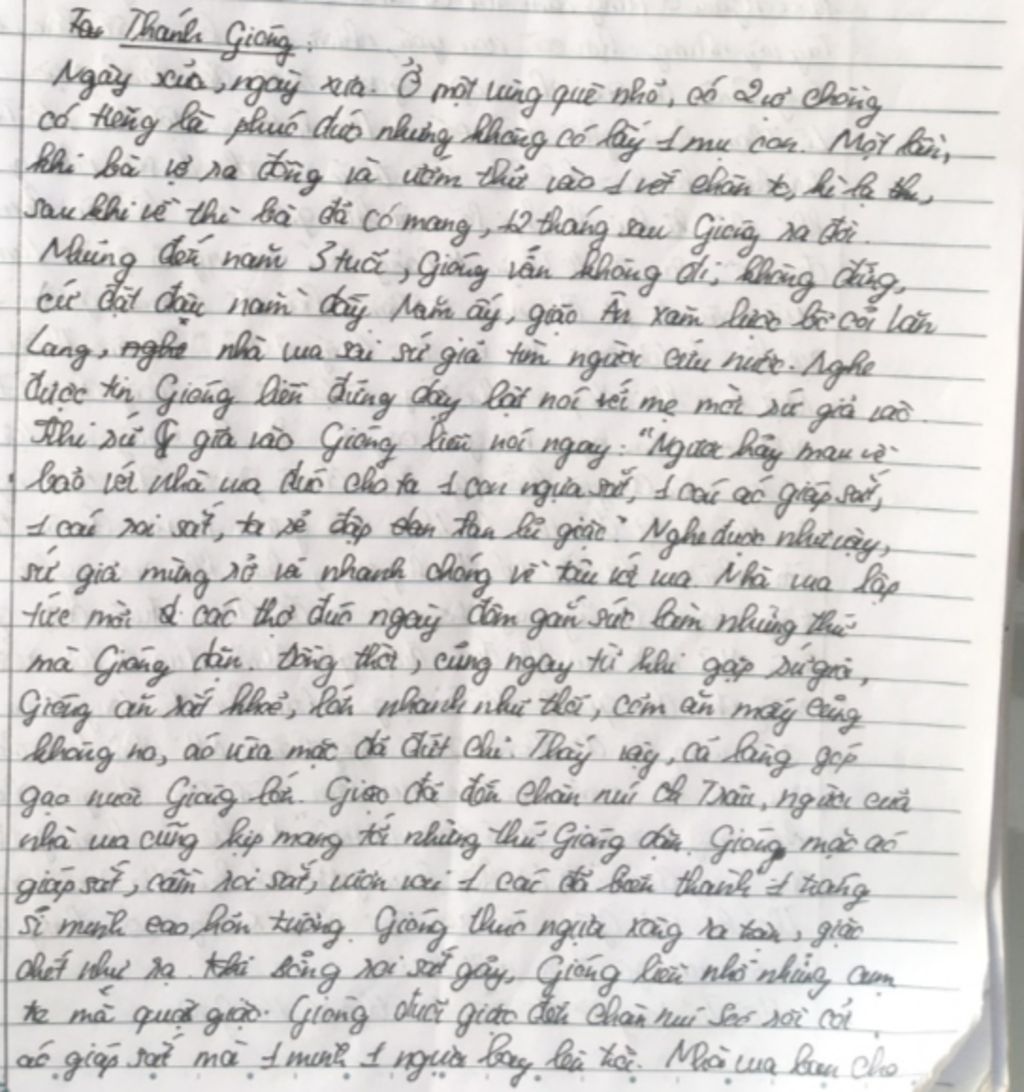 Thánh Gióng.
Ngày xửa, ngày xưa. Ở một vùng quê nhỏ, có 2 vợ chồng
có tiếng là phúc đức nhưng không có lấy 1 mụ con. Một lần,
khi bà vợ ra đồng và ướm thử vào 1 vết chân to, kì lạ thì,
sau khi về thì bà đã có mang, 12 tháng sau Gióng ra đời.
Nhưng đến năm 3 tuổi, Gióng vẫn không đi, không đứng,
cứ đặt đâu nằm đấy. Năm ấy, giặc Ân xâm lược bờ cõi
Lang, nhà vua sai sứ giả tìm người cứu nước. Nghe
được tin Gióng liền đứng dậy bật nói với mẹ mời sứ giả vào.
Khi sứ giả vào Gióng liền nói ngay: "Ngươi hãy mau về
bảo với nhà vua đúc cho ta 1 con ngựa sắt, 1 cái áo giáp sắt,
1 cái roi sắt, ta sẽ đập tan lũ giặc". Nghe được như vậy,
sứ giả mừng rỡ và nhanh chóng về tâu với vua. Nhà vua lập
tức mời các thợ đúc ngày đêm gắn sức làm những thứ
mà Gióng dặn. Đồng thời, cũng ngay từ khi gặp sứ giả,
Gióng ăn rất khoẻ, lớn nhanh như thổi, cơm ăn mấy cũng
không no, áo vừa mặc đã đứt chỉ. Thấy vậy, cả làng góp
gạo nuôi Gióng lớn. Giặc đã đến chân núi Trâu, người của
nhà vua cũng kịp mang tới những thứ Gióng dặn. Gióng mặc áo
giáp sắt, cầm roi sắt, vươn vai 1 cái đã biến thành 1 tráng
sĩ mình cao hơn trượng. Gióng thúc ngựa xông ra trận, giặc
chết như rạ. Bỗng roi sắt gãy, Gióng liền nhổ những cụm
tre mà quật giặc. Gióng đuổi giặc đến chân núi Sóc rồi cởi
áo giáp sắt mà 1 mình 1 ngựa bay lên trời. Nhà vua ban cho